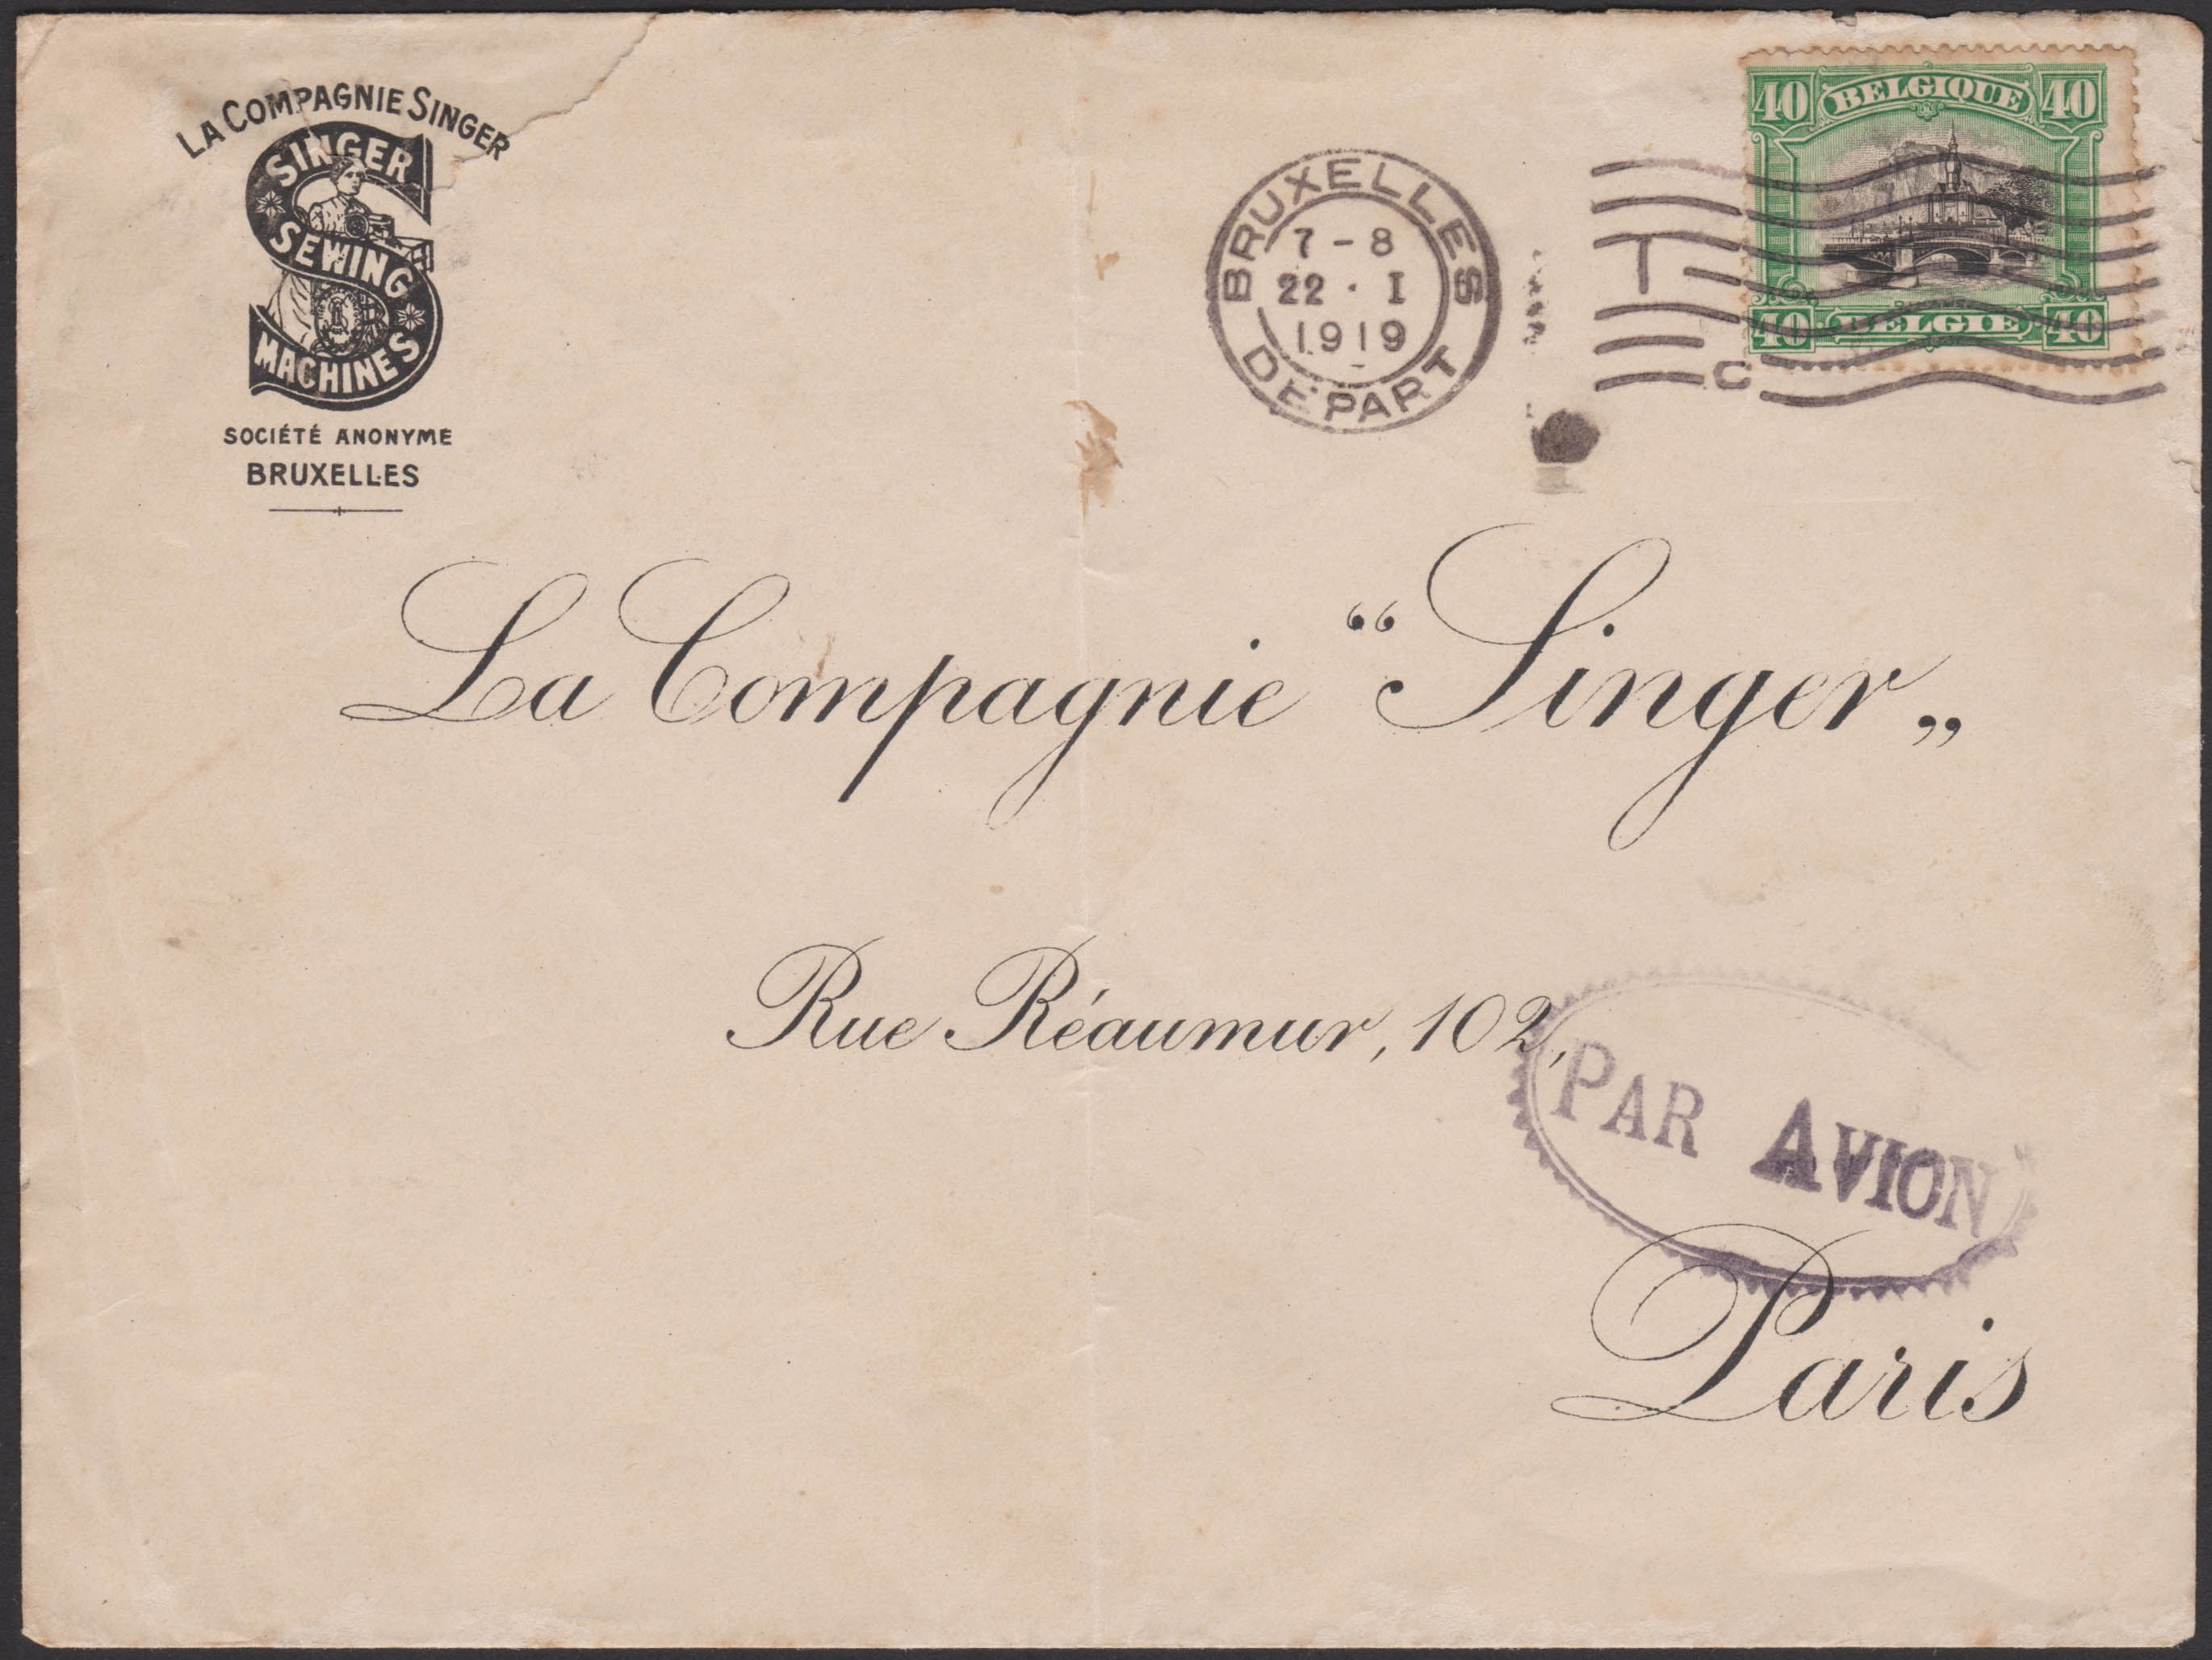 LA COMPAGNIE SINGER
SINGER
SEWING
MACHINES
SOCIÉTÉ ANONYME
BRUXELLES
BRUXELLES
7-8
22 · I
1919
DEPART
T
C
40 BELGIQUE 40
40 BELGIE 40
La Compagnie “Singer„
Rue Réaumur, 102,
PAR AVION
Paris